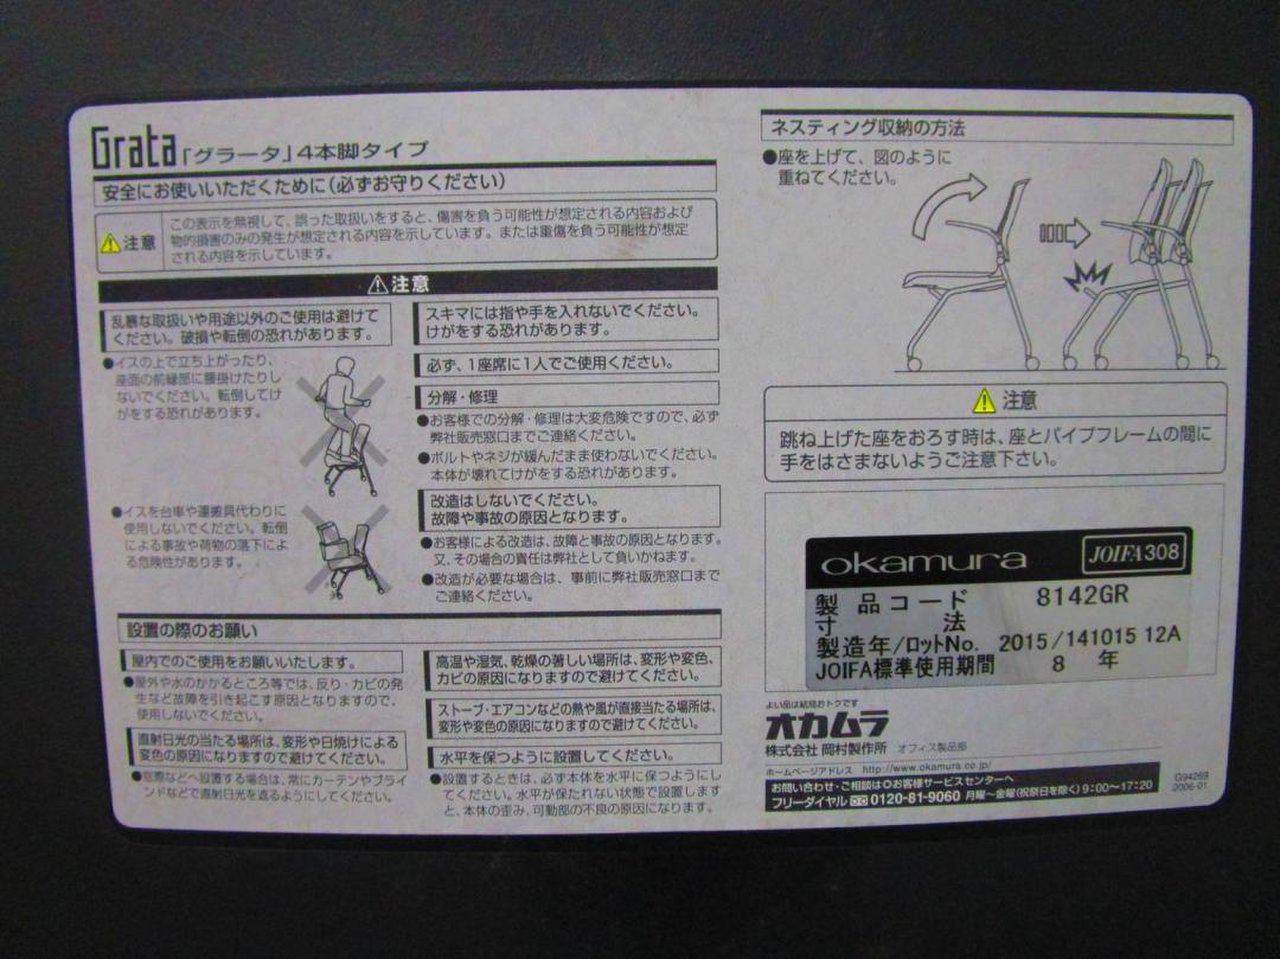 Grata「グラータ」4本脚タイプ
安全にお使いいただくために(必ずお守りください)
注意
この表示を無視して、誤った取扱いをすると、傷害を負う可能性が想定される内容および
物的損害のみの発生が想定される内容を示しています。または重傷を負う可能性が想定
される内容を示しています。
注意
乱暴な取扱いや用途以外のご使用は避けて
ください。破損や転倒の恐れがあります。
●イスの上で立ち上がったり、
座面の前縁部に腰掛けたりし
ないでください。転倒してけ
がをする恐れがあります。
●イスを台車や運搬具代わりに
使用しないでください。転倒
による事故や荷物の落下によ
る危険性があります。
スキマには指や手を入れないでください。
けがをする恐れがあります。
必ず、1座席に1人でご使用ください。
分解・修理
●お客様での分解・修理は大変危険ですので、必ず
弊社販売窓口までご連絡ください。
●ボルトやネジが緩んだまま使わないでください。
本体が壊れてけがをする恐れがあります。
改造はしないでください。
故障や事故の原因となります。
●お客様による改造は、故障と事故の原因となります。
又、その場合の責任は弊社として負いかねます。
●改造が必要な場合は、事前に弊社販売窓口まで
ご連絡ください。
設置の際のお願い
屋内でのご使用をお願いいたします。
●屋外や水のかかるところ等では、反り・カビの発
生など故障を引き起こす原因となりますので、
使用しないでください。
直射日光の当たる場所は、変形や日焼けによる
変色の原因になりますので避けてください。
●窓際などへ設置する場合は、常にカーテンやブライ
ンドなどで直射日光を遮るようにしてください。
高温や湿気、乾燥の著しい場所は、変形や変色、
カビの原因になりますので避けてください。
ストーブ・エアコンなどの熱や風が直接当たる場所は、
変形や変色の原因になりますので避けてください。
水平を保つように設置してください。
●設置するときは、必ず本体を水平に保つようにし
てください。水平が保たれない状態で設置します
と、本体の歪み、可動部の不良の原因になります。
ネスティング収納の方法
●座を上げて、図のように
重ねてください。
注意
跳ね上げた座をおろす時は、座とパイプフレームの間に
手をはさまないようご注意下さい。
okamura JOIFA308
製品コード 8142GR
寸法
製造年/ロットNo. 2015/141015 12A
JOIFA標準使用期間 8 年
よい品は結局おトクです
オカムラ
株式会社 岡村製作所 オフィス製品部
ホームページアドレス http://www.okamura.co.jp/
お問い合わせ・ご相談はお客様サービスセンターへ
フリーダイヤル 0120-81-9060 月曜〜金曜(祝祭日を除く)9:00〜17:20
G94269
2006-01